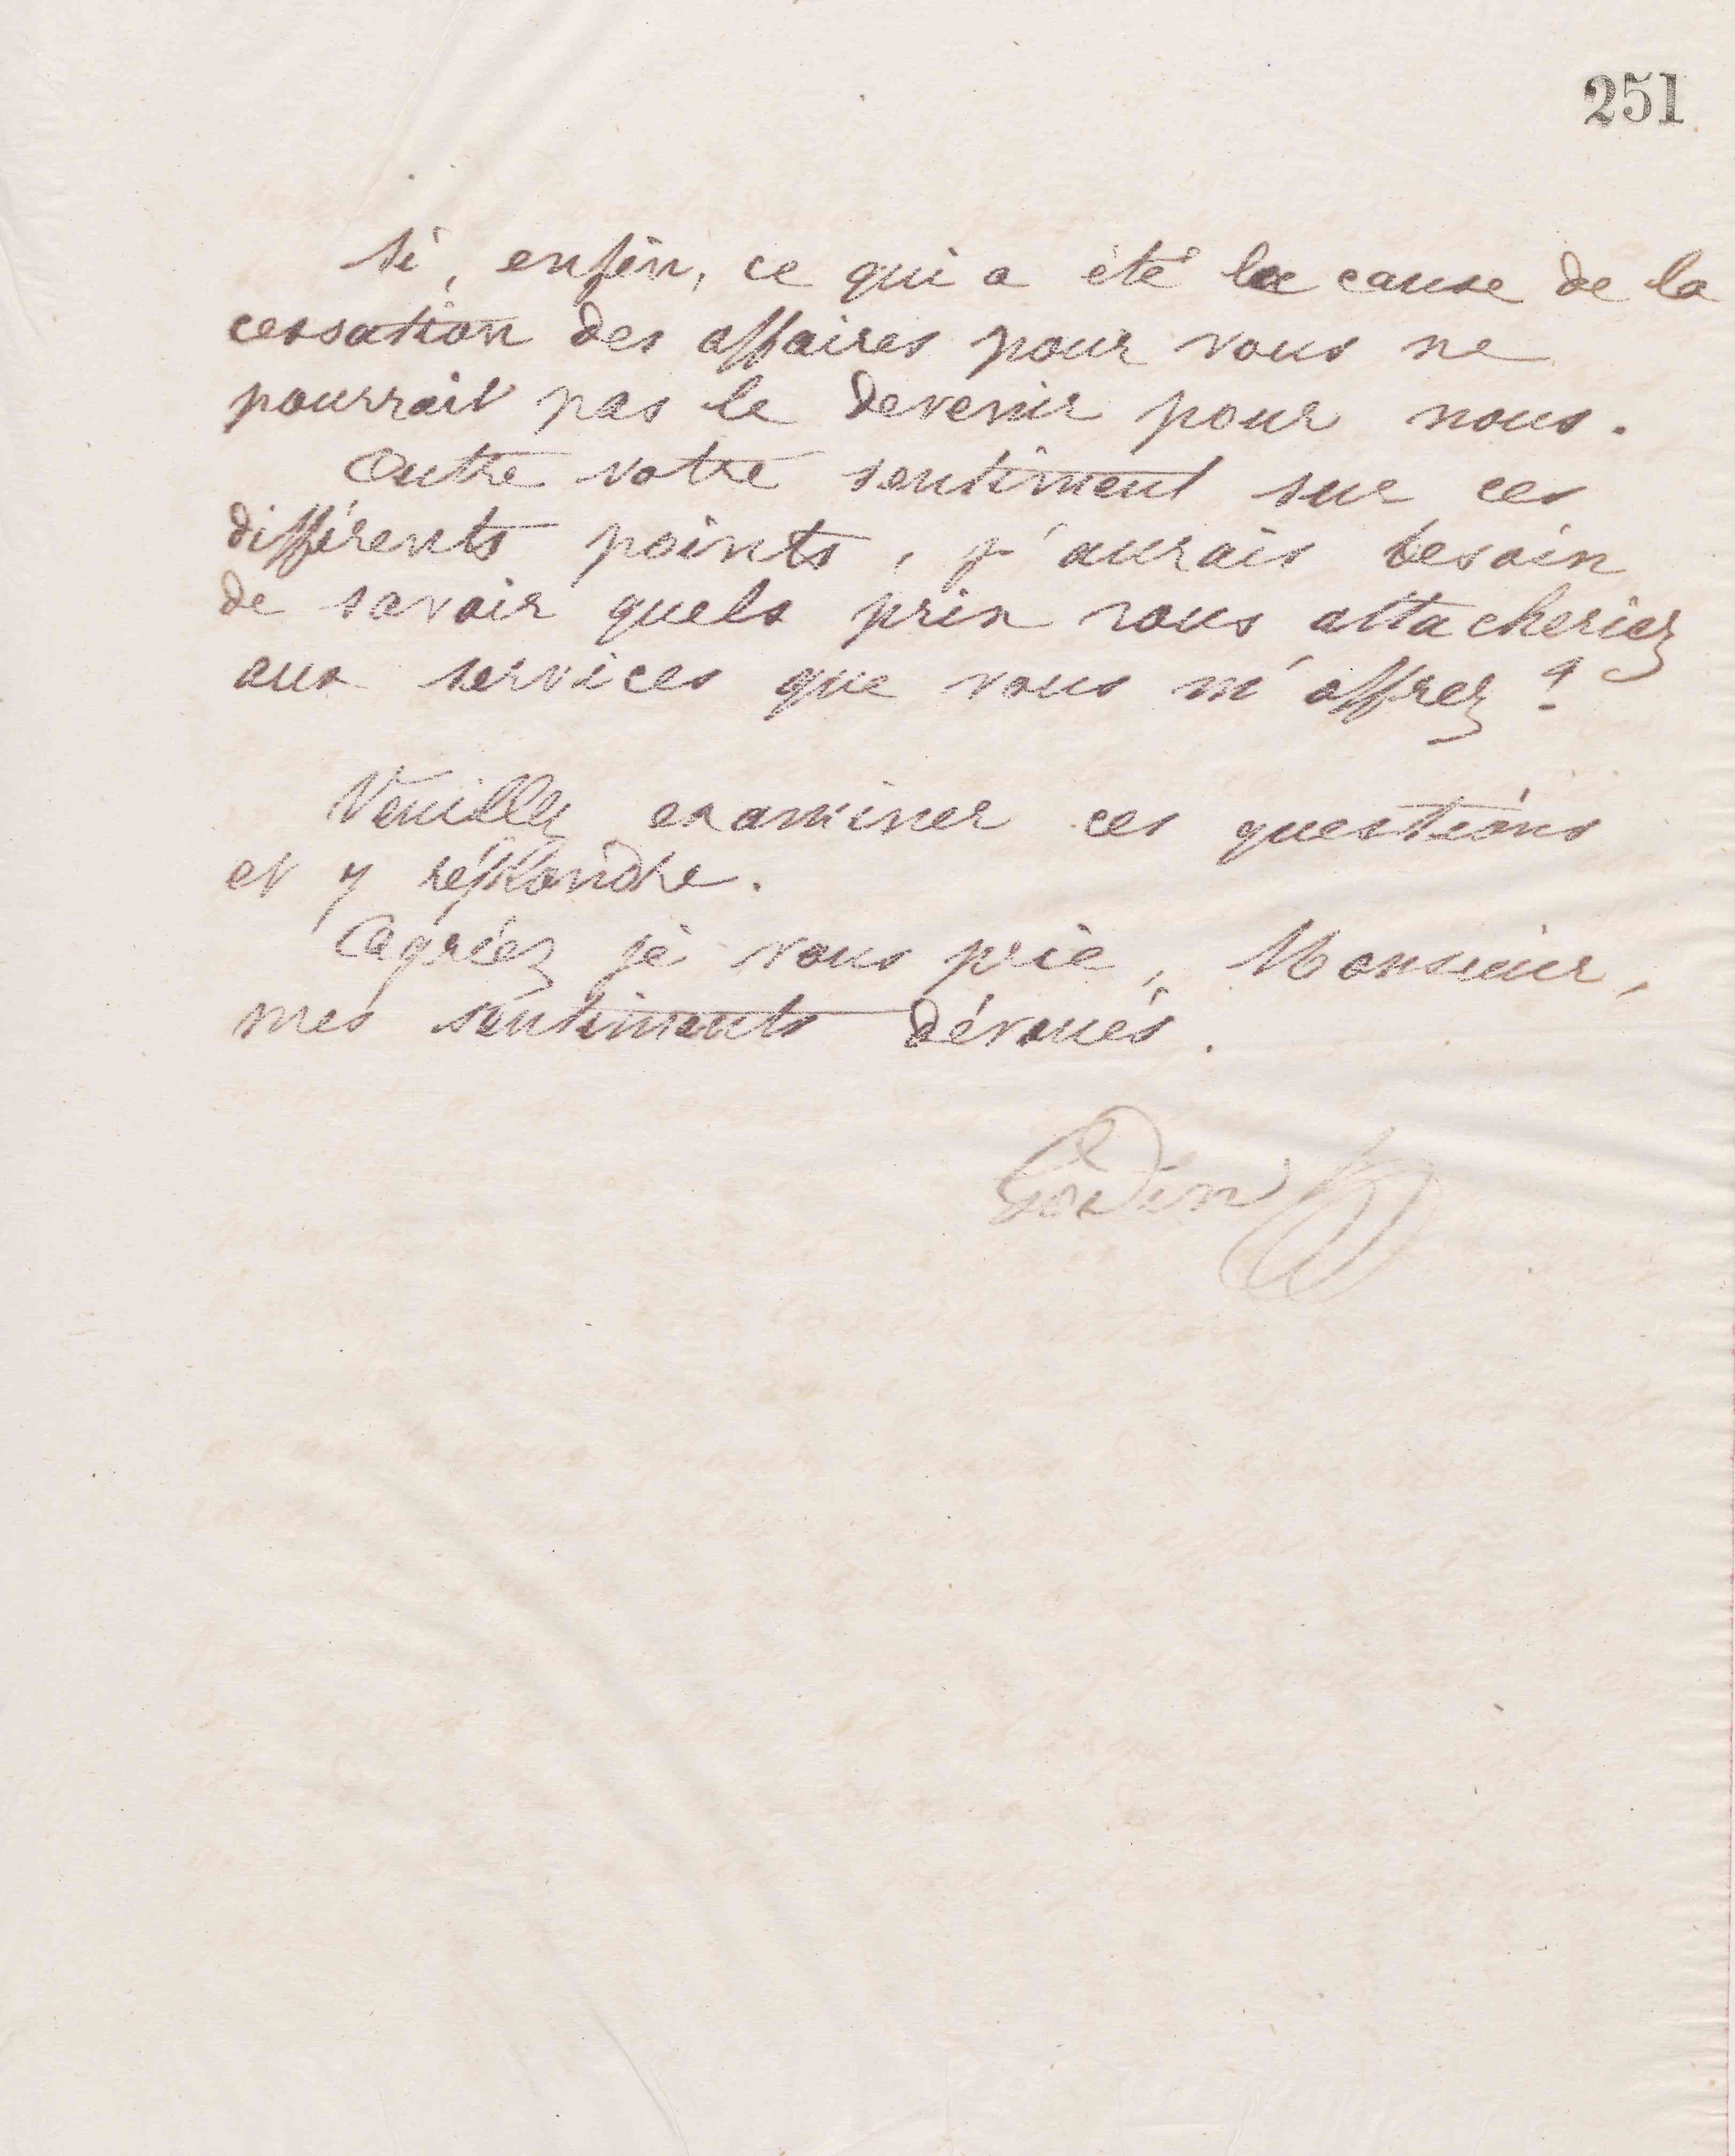 251
Si, enfin, ce qui a été la cause de la
cessation des affaires pour vous ne
pourrait pas le devenir pour nous.
Outre votre sentiment sur ces
différents points, j'aurais besoin
de savoir quels prix vous attacheriez
aux services que vous m'offrez ?
Veuillez examiner ces questions
et y répondre.
Agréez je vous prie, Monsieur,
mes sentiments dévoués.
Godin